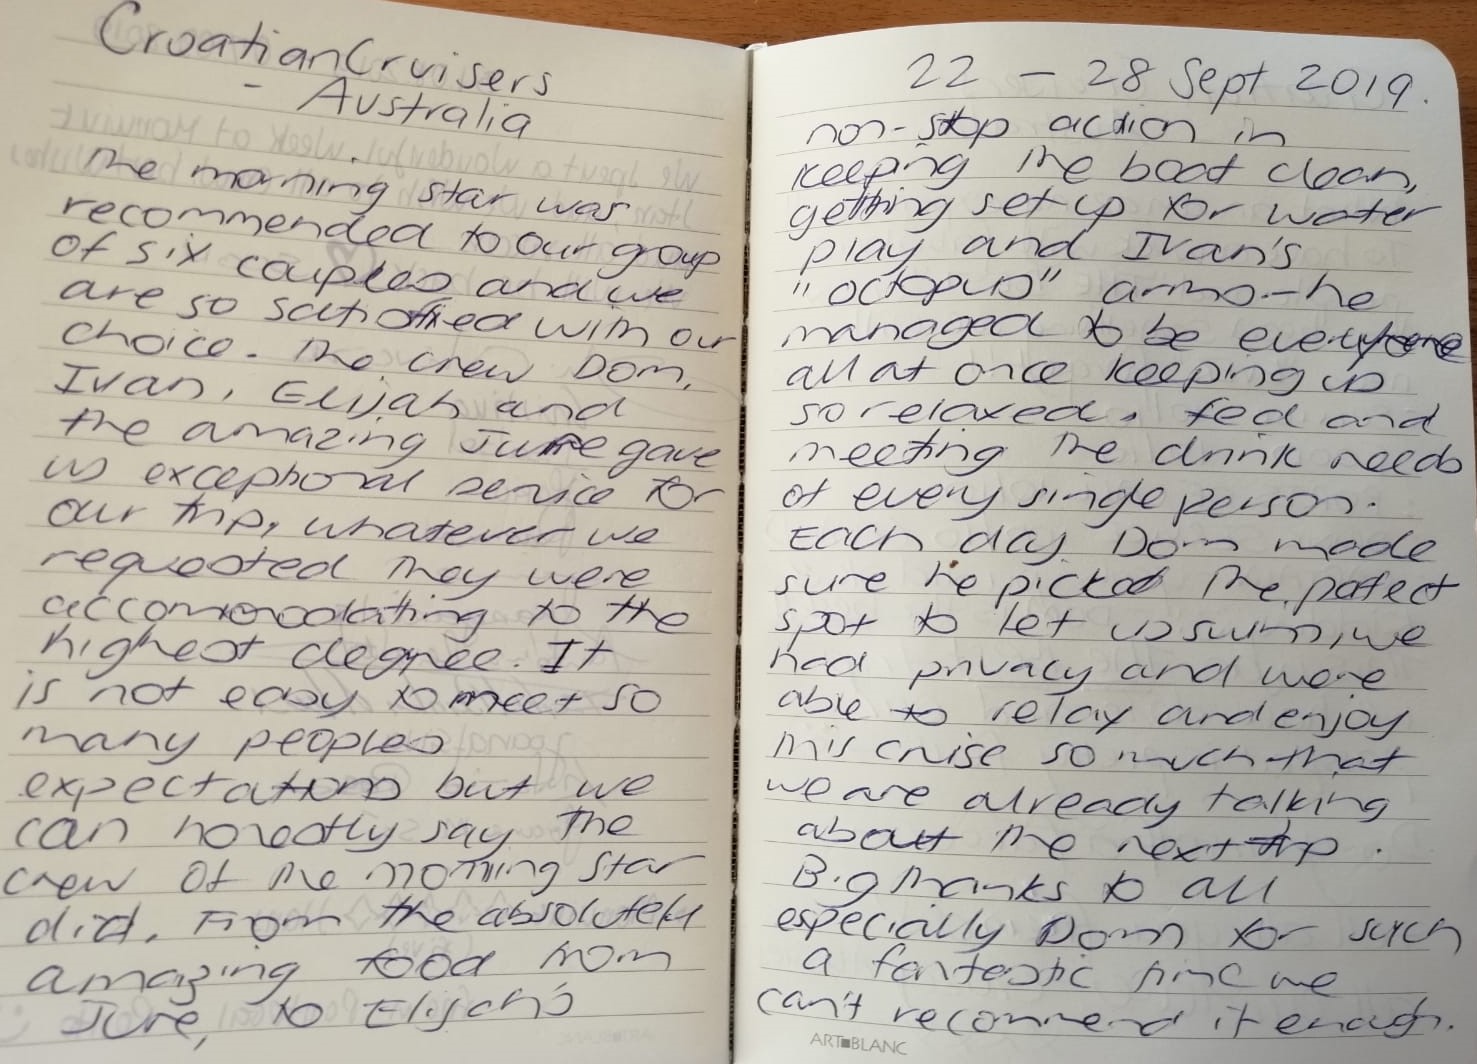 Croatian Cruisers
- Australia
The morning star was
recommended to our group
of six couples and we
are so satisfied with our
choice. The crew Dom,
Ivan, Elijah and
the amazing Jure gave
us exceptional service for
our trip, whatever we
requested they were
accommodating to the
highest degree. It
is not easy to meet so
many peoples
expectations but we
can honestly say the
crew of the morning star
did. From the absolutely
amazing food from
Jure, to Elijah's
22 - 28 Sept 2019.
non-stop action in
keeping the boat clean,
getting set up for water
play and Ivan's
"octopus" arms - he
managed to be everywhere
all at once keeping us
so relaxed, fed and
meeting the drink needs
of every single person.
Each day Dom made
sure he picked the pefect
spot to let us swim, we
had privacy and were
able to relax and enjoy
this cruise so much that
we are already talking
about the next trip.
Big thanks to all
especially Dom for such
a fantastic time we
can't recommend it enough.
ART BLANC